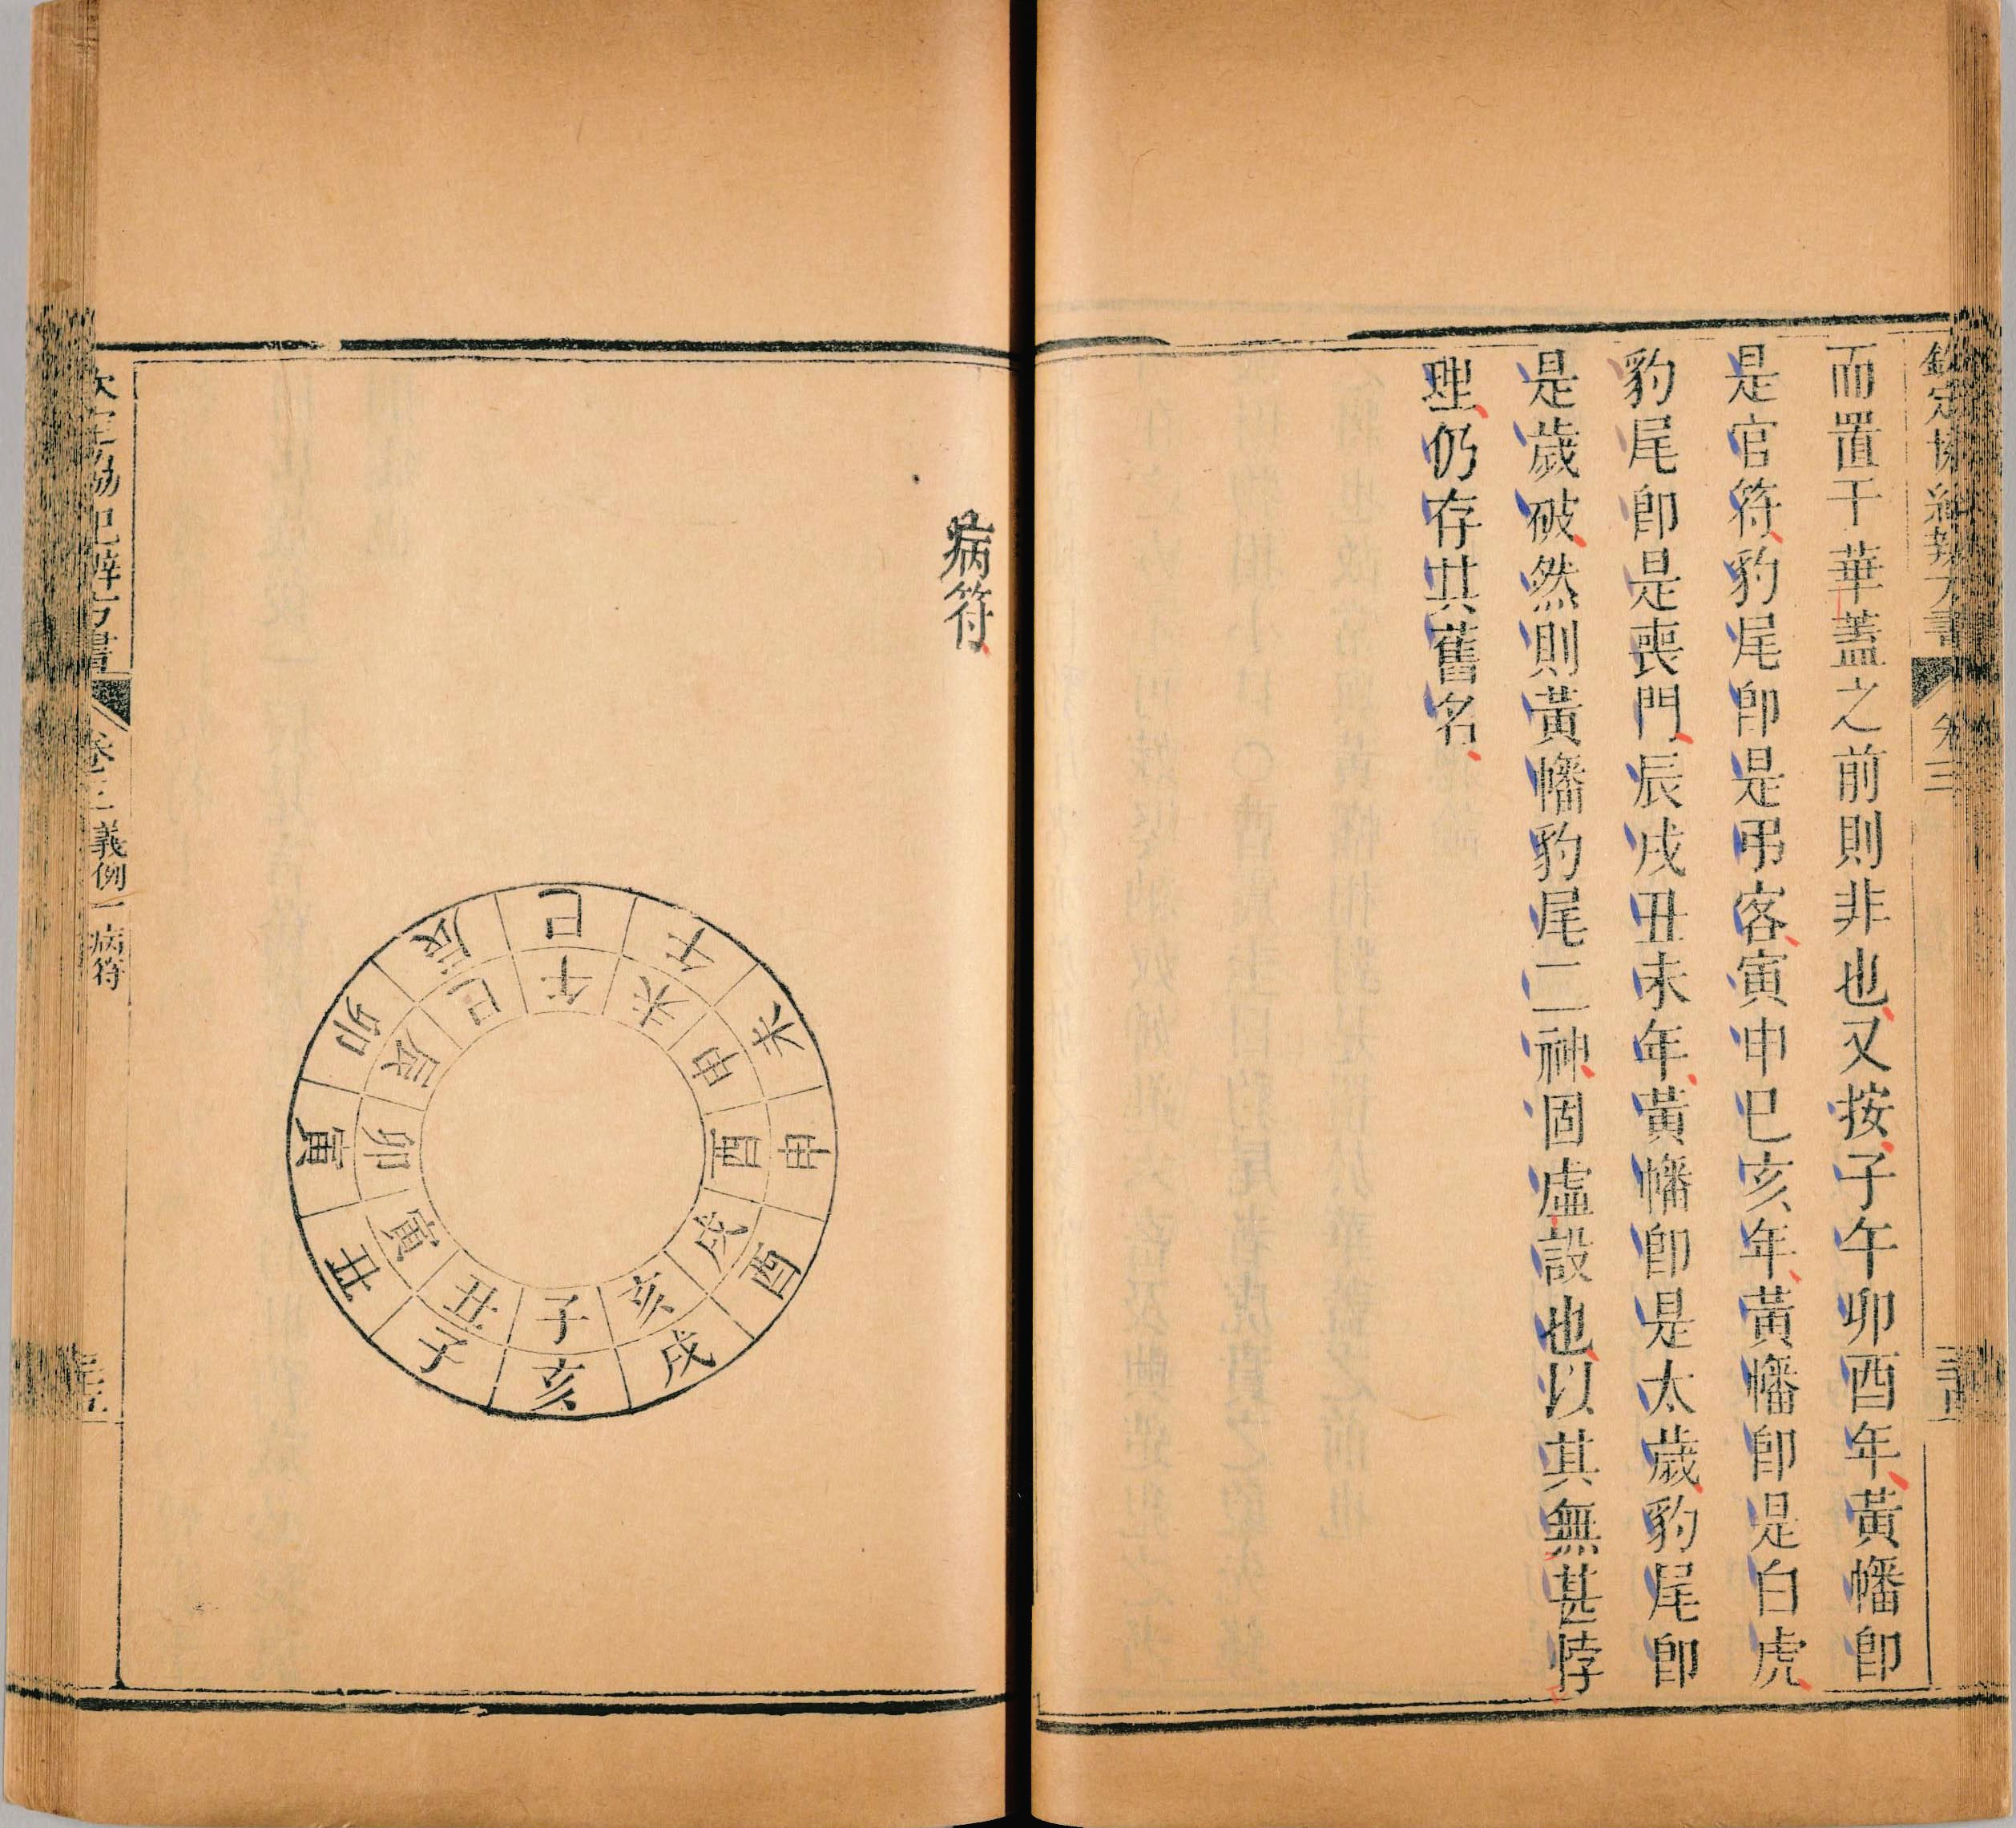 欽定協紀辨方書 卷三
而置于華蓋之前則非也又按子午卯酉年黃幡卽
是官符豹尾卽是弔客寅申巳亥年黃幡卽是白虎
豹尾卽是喪門辰戌丑未年黃幡卽是太歲豹尾卽
是歲破然則黃幡豹尾二神固虛設也以其無甚悖
理仍存其舊名
病符
巳 午 未 申 酉 戌 亥 子 丑 寅 卯 辰
午 未 申 酉 戌 亥 子 丑 寅 卯 辰 巳
欽定協紀辨方書 卷三 義例一 病符